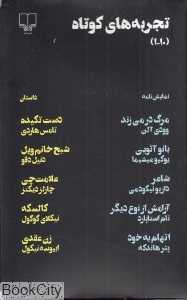 تجربه‌های کوتاه
(۱-۱۰)
نمایش‌نامه
مرگ در می‌زند
وودی آلن
بانو آئویی
یوکیو میشیما
شاعر
داریو نیکودمی
آرامش از نوع دیگر
تام استاپارد
اتهام به خود
پتر هاندکه
داستان
دست تکیده
تامس هاردی
شبح خانم ویل
دنیل دفو
علامت‌چی
چارلز دیکنز
کالسکه
نیکلای گوگول
زن عقدی
BookCity
BookCity